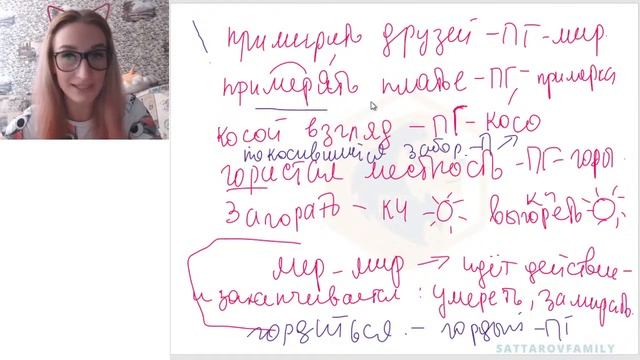 примирять друзей - ПГ - мир
примерять платье - ПГ - примерка
косой взгляд - ПГ - косо
покосившийся забор - П
гористая местность - ПГ - горы
Загорать - КЧ - выгореть - КЧ
мер - мир → идёт действие -
и заканчивается : умереть, замирать.
гордиться - гордый - ПГ
SATTAROVFAMILY